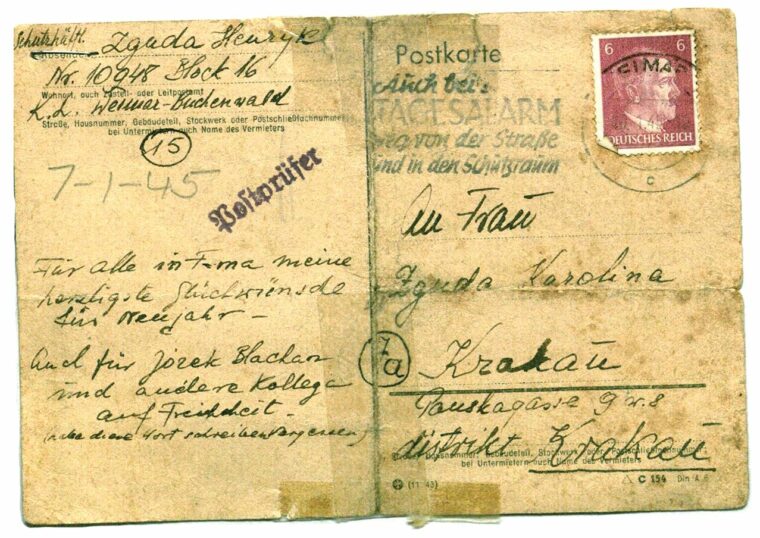 Schutzhäftl. Zguda Henryk
Absender:
Nr. 10948 Block 16
Wohnort, auch Zustell- oder Leitpostamt
K.L. Weimar-Buchenwald
Straße, Hausnummer, Gebäudeteil, Stockwerk oder Postschließfachnummer
bei Untermietern auch Name des Vermieters
15
7-1-45
Postprüfer
Für alle in F-ma meine
herzligste Glückwünsche
für Neujahr -
Auch für Jözek Blachar
und andere Kollega
auf Freiheit -
Wort schreiben vergessen)
Postkarte
Auch bei
TAGESALARM
weg von der Straße
und in den Schutzraum
6 6
DEUTSCHES REICH
EIMAR
c
An Frau
Zguda Karolina
7a
Krakau
9 w. 8
distrikt Krakau
Straße, Hausnummer, Gebäudeteil, Stockwerk oder Postschließfachnummer
bei Untermietern auch Name des Vermieters
(11 43)
C 154 Din A 6